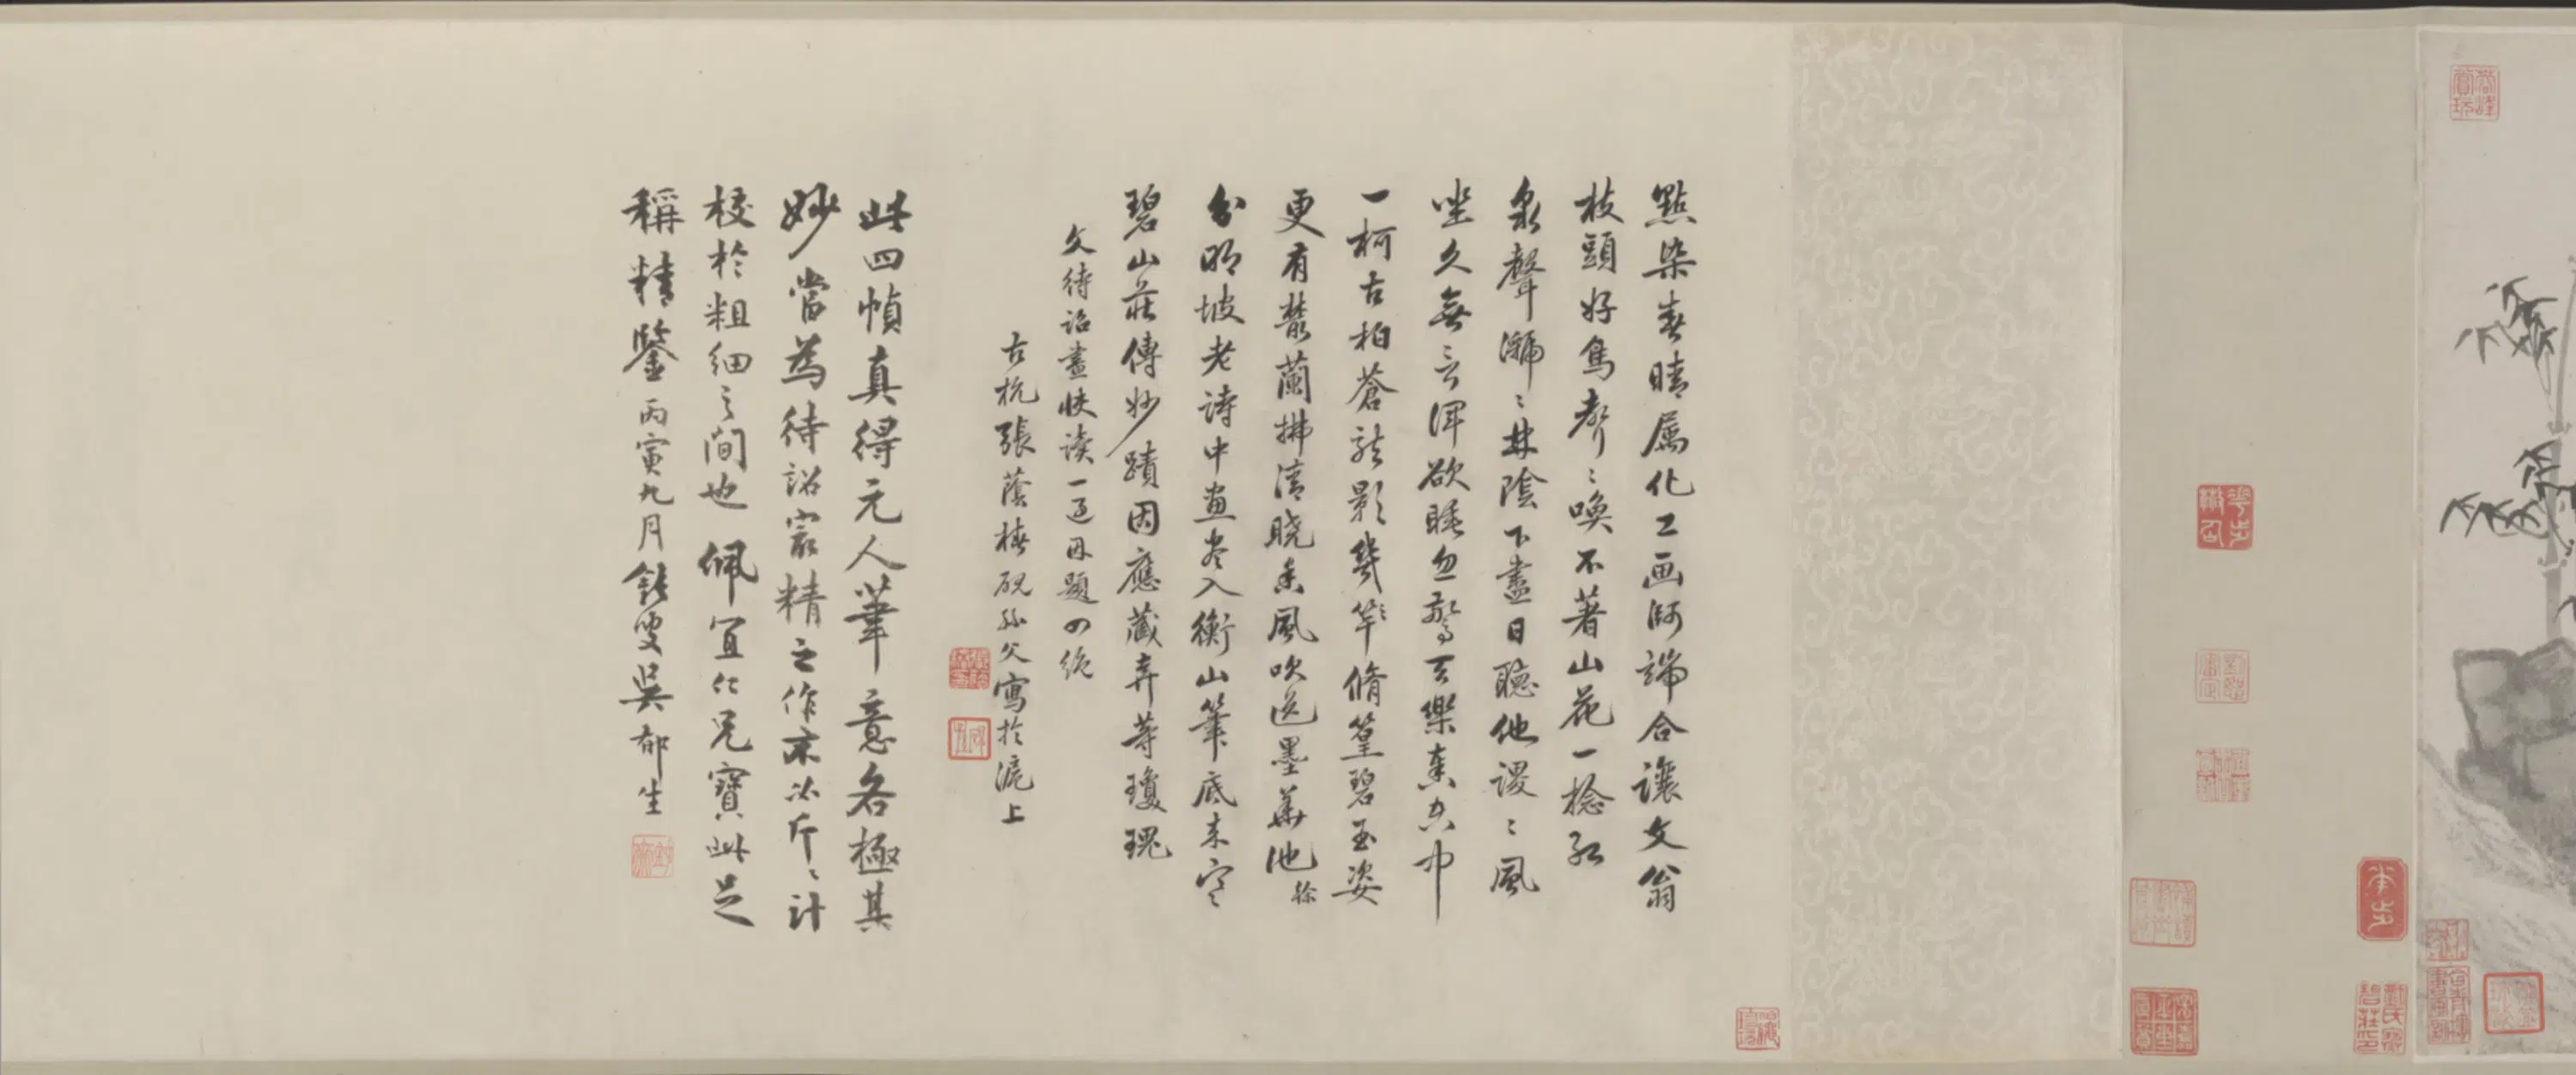 點染春晴属化工画師端合讓文翁
枝頭好鳥聲〻喚不著山花一捻紅
泉聲㶁〻林陰下盡日聽他謖〻風
坐久無言渾欲睡忽驚天樂奏空中
一柯古柏蒼龍影幾竿脩篁碧玉姿
更有叢蘭拂清曉香風吹送墨華池
分明坡老詩中画卷入衡山筆底来寒
碧山莊傳妙蹟因應藏弆等瓊瑰
文待詔畫快读一過因題四絶
古杭張蔭椿硯孫父寫於滬上
此四幀真得元人筆意各極其
妙當為待詔最精之作不必斤〻計
校於粗細之間也佩宜仁兄寶此足
稱精鑒丙寅九月鈍叟吳郁生